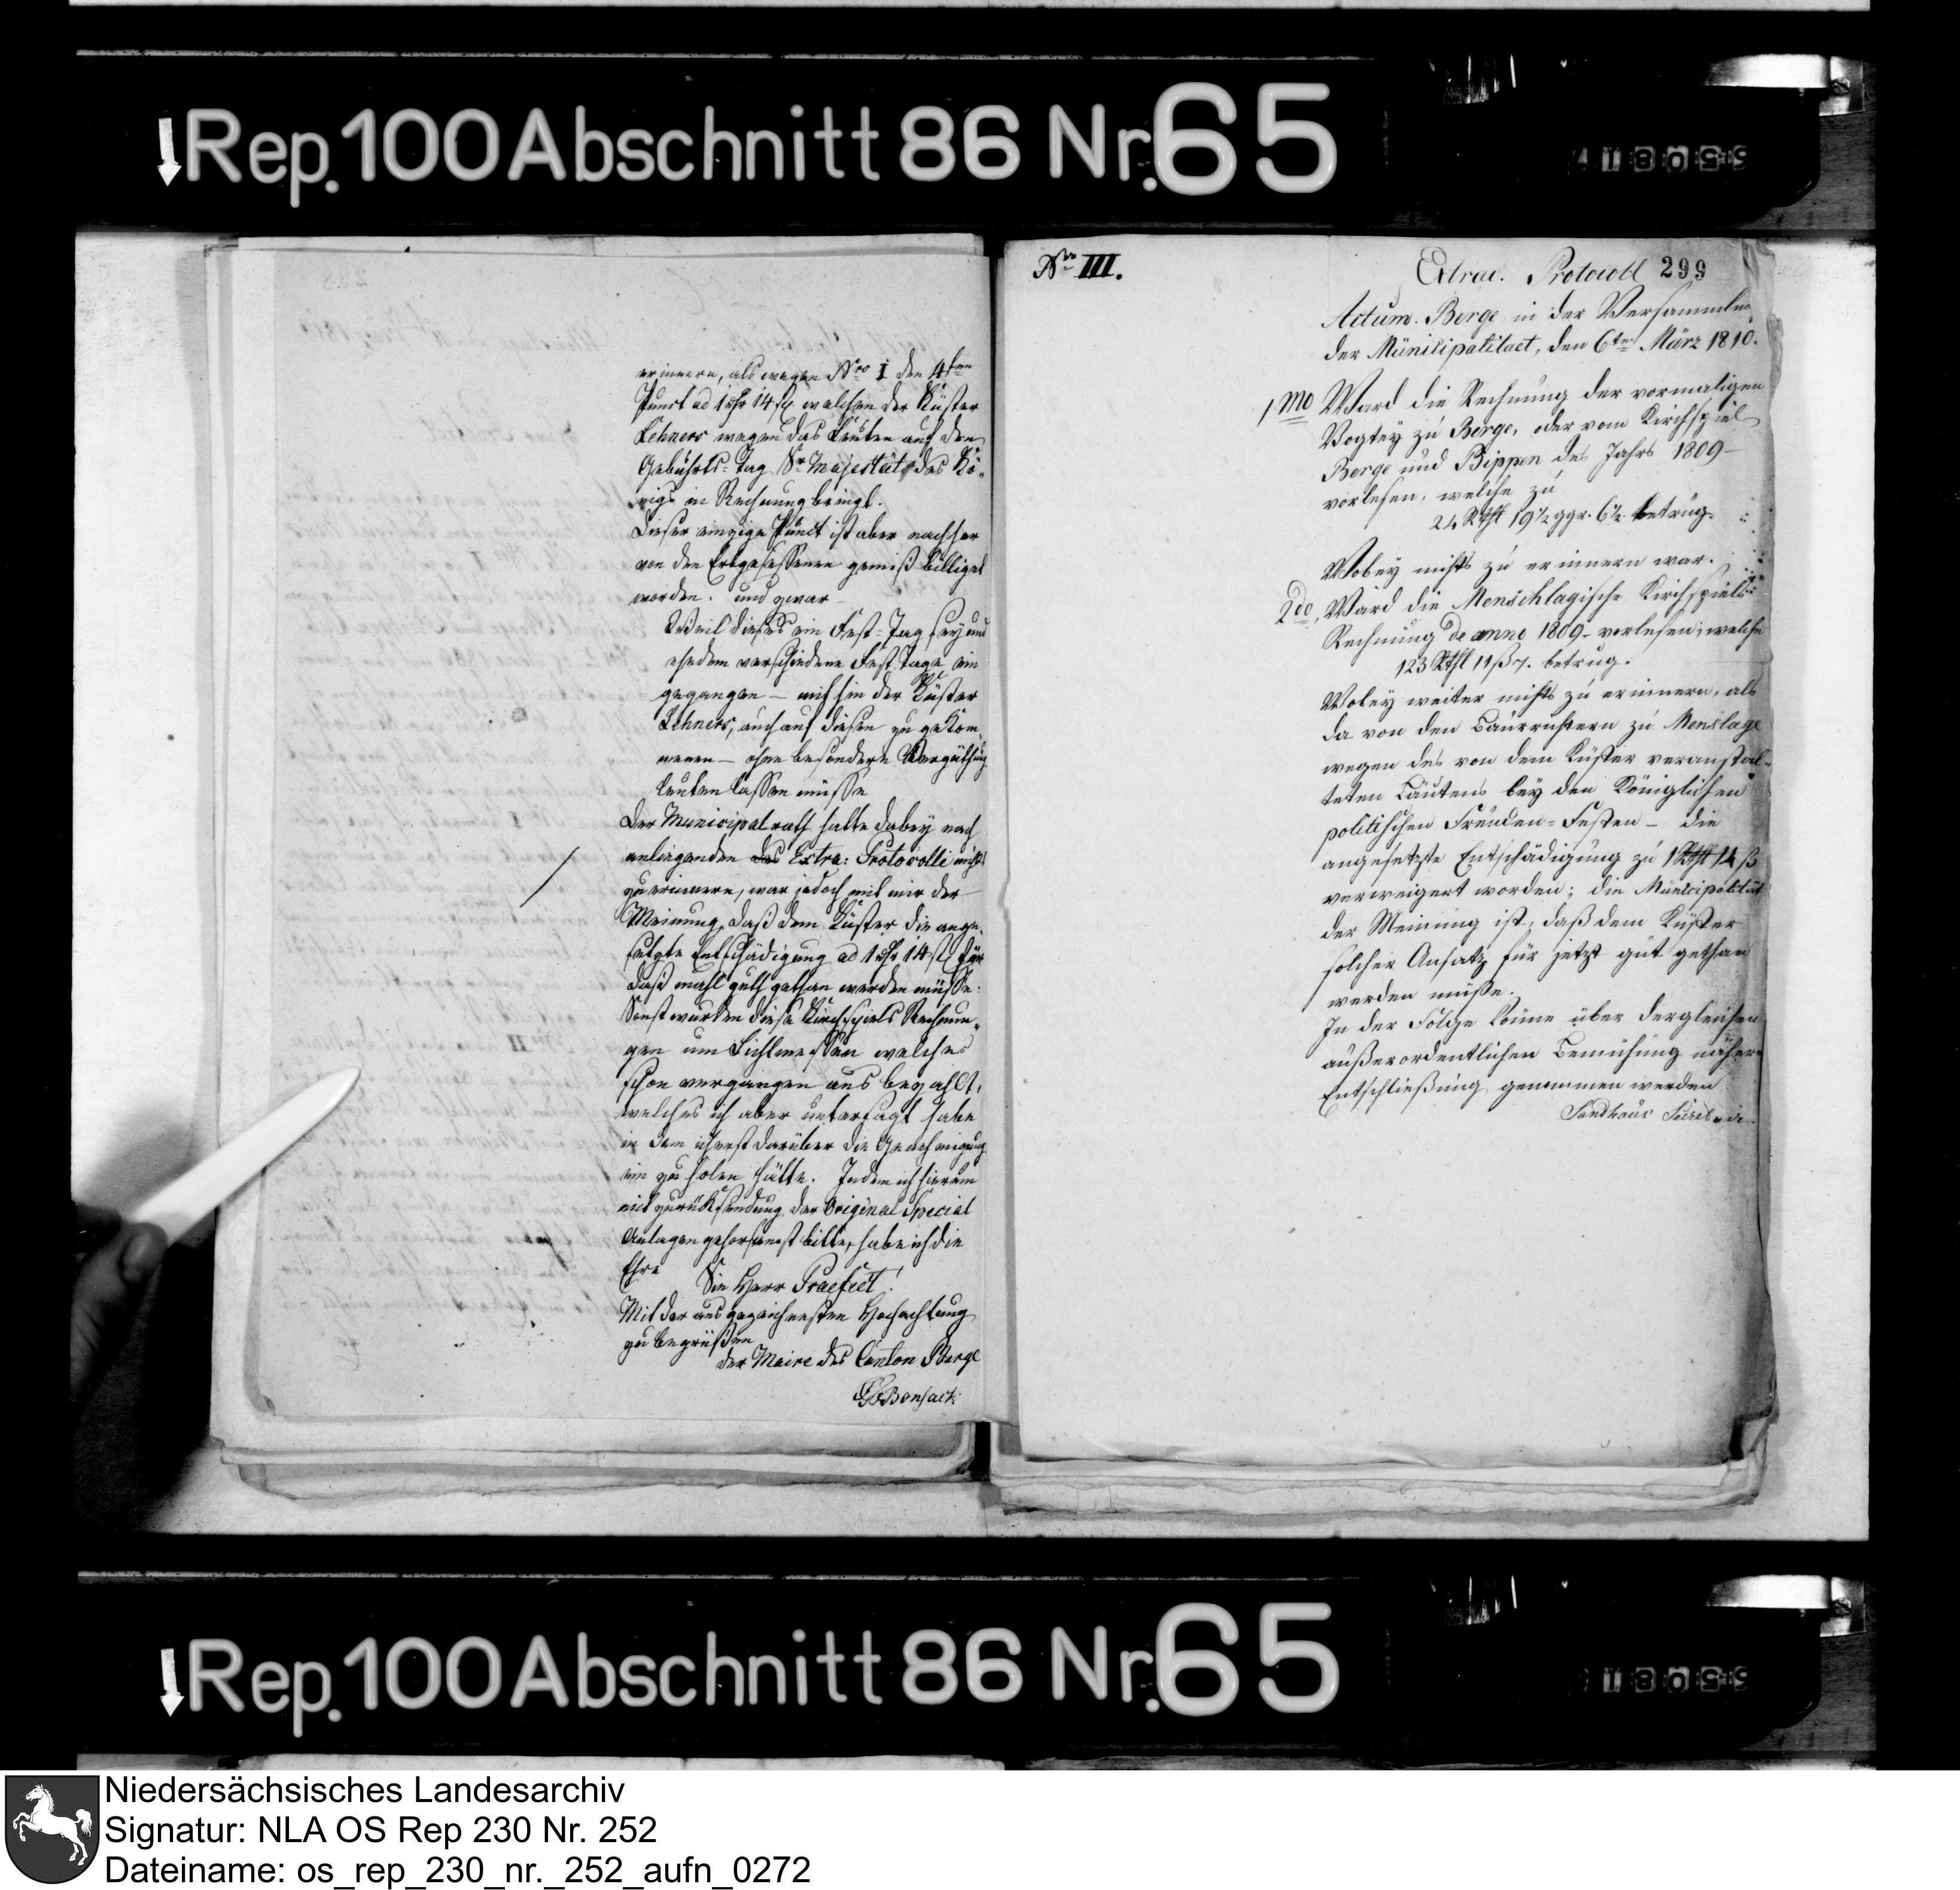 Rep. 100 Abschnitt 86 Nr. 65
erinnern, als wegen Nro I den 4ten
Punct ad 1 rthr 14 ß welchen der Küster
Lehners wegen das Leuten auf den
Gebuhrts=Tag Sr Majestät des Kö-
nigs in Rechnung bringt.
Dieser einzige Punct ist aber nachher
von den Erbgesessenen gewiß billiget
worden. und zwar
Weil dieses ein Fest=Tag sey und
ehedem verschiedene Fest Tage ein
gegangen — mithin der Küster
Lehners, auch auf diesen zu gekom-
menen — ohne besondere Vergüthung
leuten lassen müsse
Der Municipalrath hatte dabey nach
anliegenden das Extra: Protocolli nichts
zu erinnern, war jedoch mit mir der
Meinung, daß dem Küster die ange-
setzte Entschädigung ad 1 rthr 14 ß für
daß mahl guth gethan werden müsse.
Sonst wurden diese Kirchspiels Rechnun-
gen um Lichtmessen welches
schon vergangen aus bezahlt,
welches ich aber untersagt habe
in dem ich erst darüber die Genehmigung
ein zu holen hätte. Indem ich hierum
mit zurücksendung der Original Special
Anlagen gehorsamst bitte, habe ich die
Ehre Sie Herr Praefect!
Mit der ausgezeichnesten Hochachtung
zu begrüßen
der Maire des Canton Berge
Bonsack
Nro III.
Extrac. Protocoll 299
Actum. Berge in der Versammlung
der Münicipalitaet, den 6ten März 1810.
1mo Ward die Rechnung der vormaligen
Vogtey zu Berge, oder vom Kirchspiel
Berge und Bippen des Jahrs 1809—
vorlesen, welche zu
24 Rthl 19½ ggr. 6½ betrug.
Wobey nichts zu erinnern war.
2do. Ward die Menschlagische Kirchspiels
Rechnung de anno 1809 — vorlesen; welche
123 Rthl 11 ß 7. betrug.
Wobey weiter nichts zu erinnern, als
da von den Baurrichtern zu Menslage
wegen des von dem Küster veranstal-
teten Läutens bey den Königlichen
politischen Freuden=Festen — die
angesetzte Entschädigung zu 1 Rthl 14 ß
verweigert worden; die Municipalität
der Meinung ist, daß dem Küster
solcher Ansatz für jetzt gut gethan
werden müsse.
In der Folge könne über dergleichen
außerordentlichen Bemühung nähere
Entschließung genommen werden
Sandhaus
Rep. 100 Abschnitt 86 Nr. 65
Niedersächsisches Landesarchiv
Signatur: NLA OS Rep 230 Nr. 252
Dateiname: os_rep_230_nr._252_aufn_0272